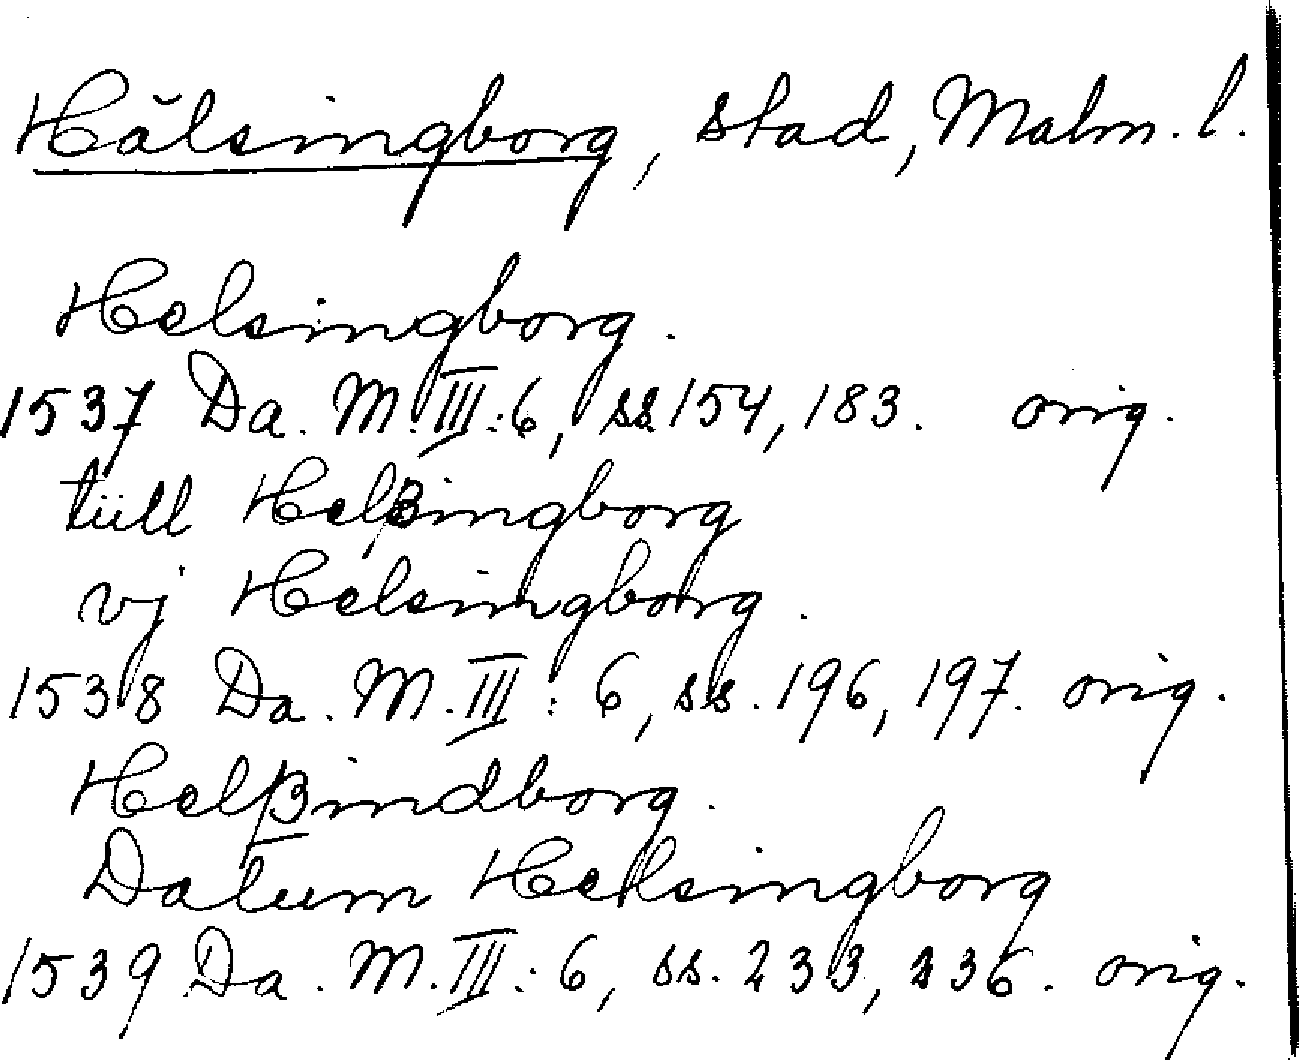 Hälsingborg, stad, Malm. l.
Helsingborg.
1537 Da. M. III:6, ss 154, 183. orig.
tüll Helßingborg
vj Helsingborg.
1538 Da. M. III: 6, ss. 196, 197. orig.
Helßindborg.
Datum Helsingborg
1539 Da. M. III: 6, ss. 233, 236. orig.